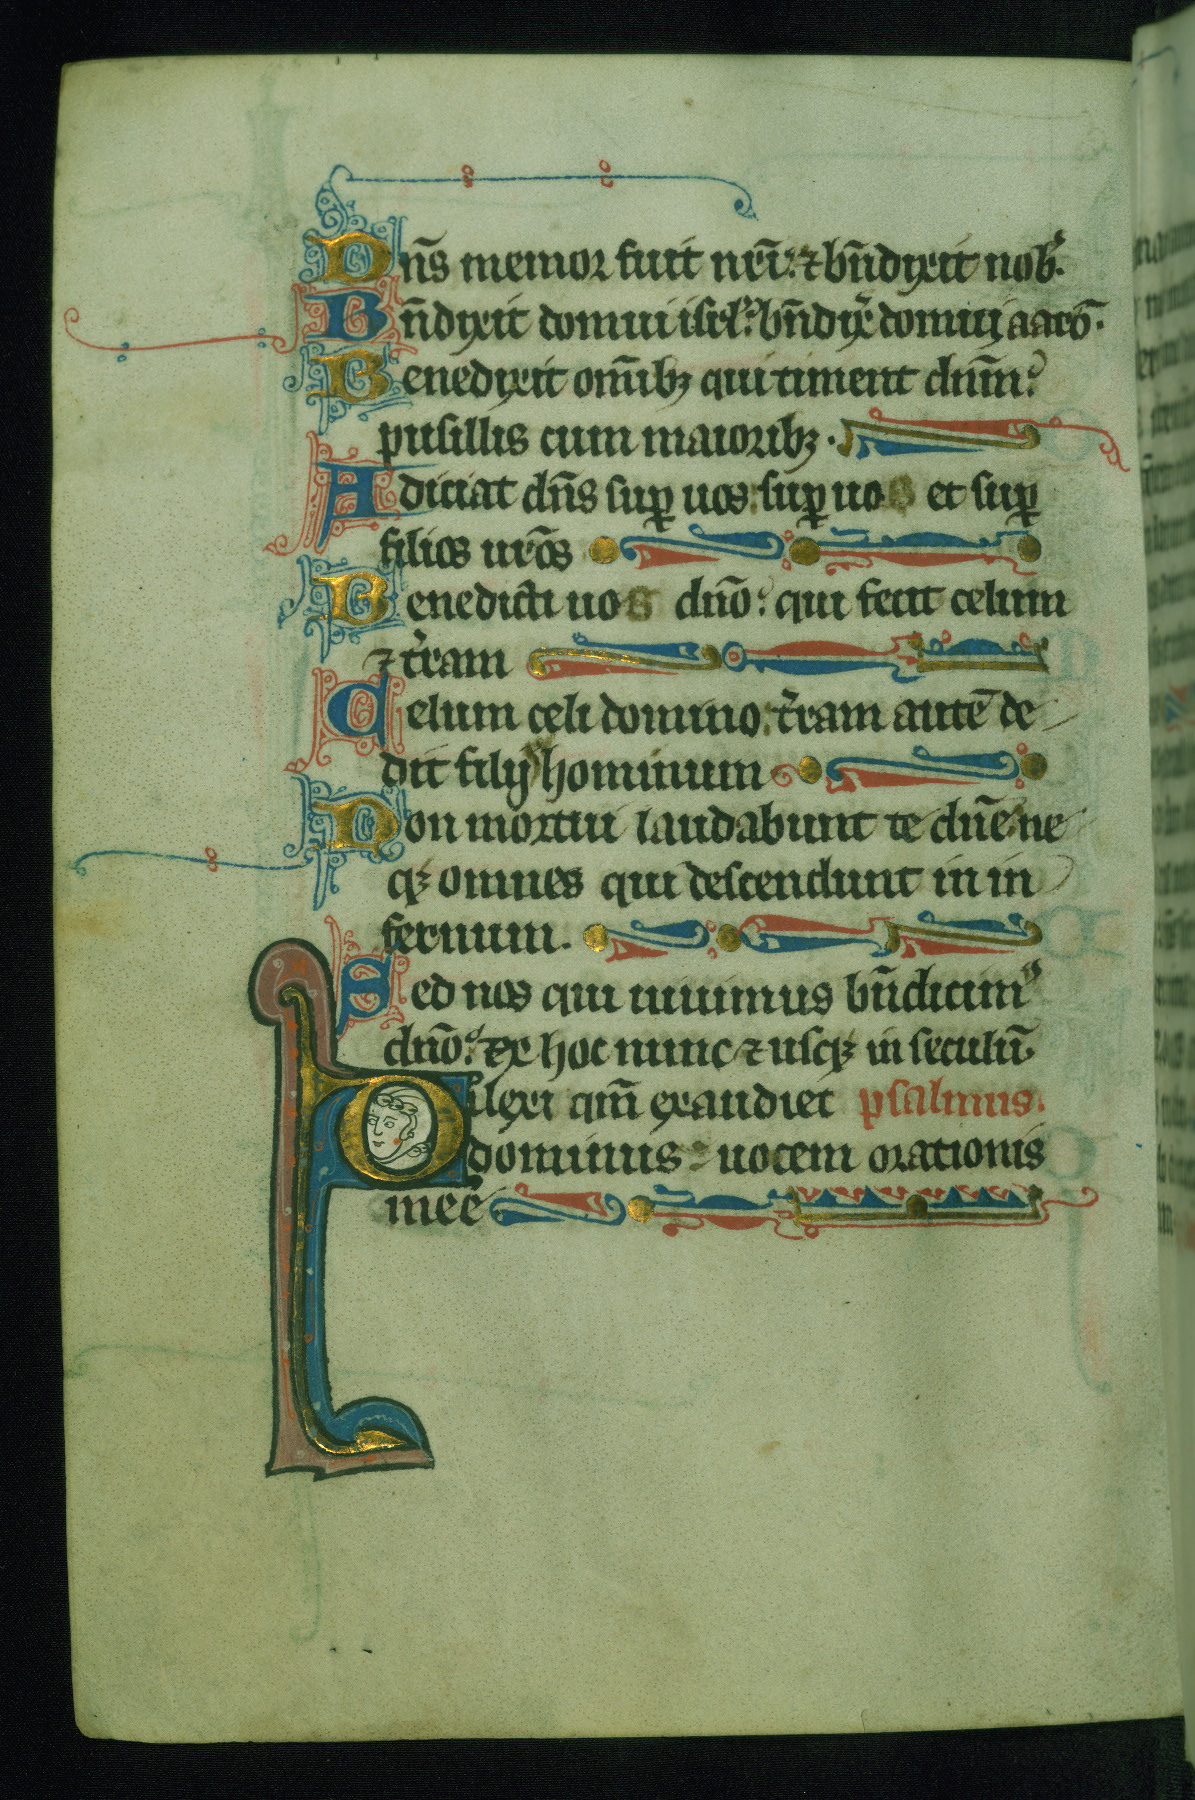 Dn̄s memor fuit nr̄i: ⁊ bn̄dixit nob̾.
Bn̄dixit domui isrl̾: bn̄dix̾ domui aarō.
Benedixit om̄ibꝫ qui timent dn̄m:
pusillis cum maioribꝫ.
Adiciat dn̄s sup̱ uos: sup̱ uos et sup̱
filios ur̄os
Benedicti uos dn̄o: qui fecit celum
⁊ t̾ram
Celum celi domino: t̾ram autē de
dit filij hominum
Non mortui laudabunt te dn̄e: ne
qꝫ omnes qui descendunt in in
fernum.
Sed nos qui uiuimus bn̄dicimꝰ
dn̄o: ex hoc nunc ⁊ usqꝫ in seculū.
Dilexi qm̄ exaudiet psalmus.
dominus: uocem orationis
mee